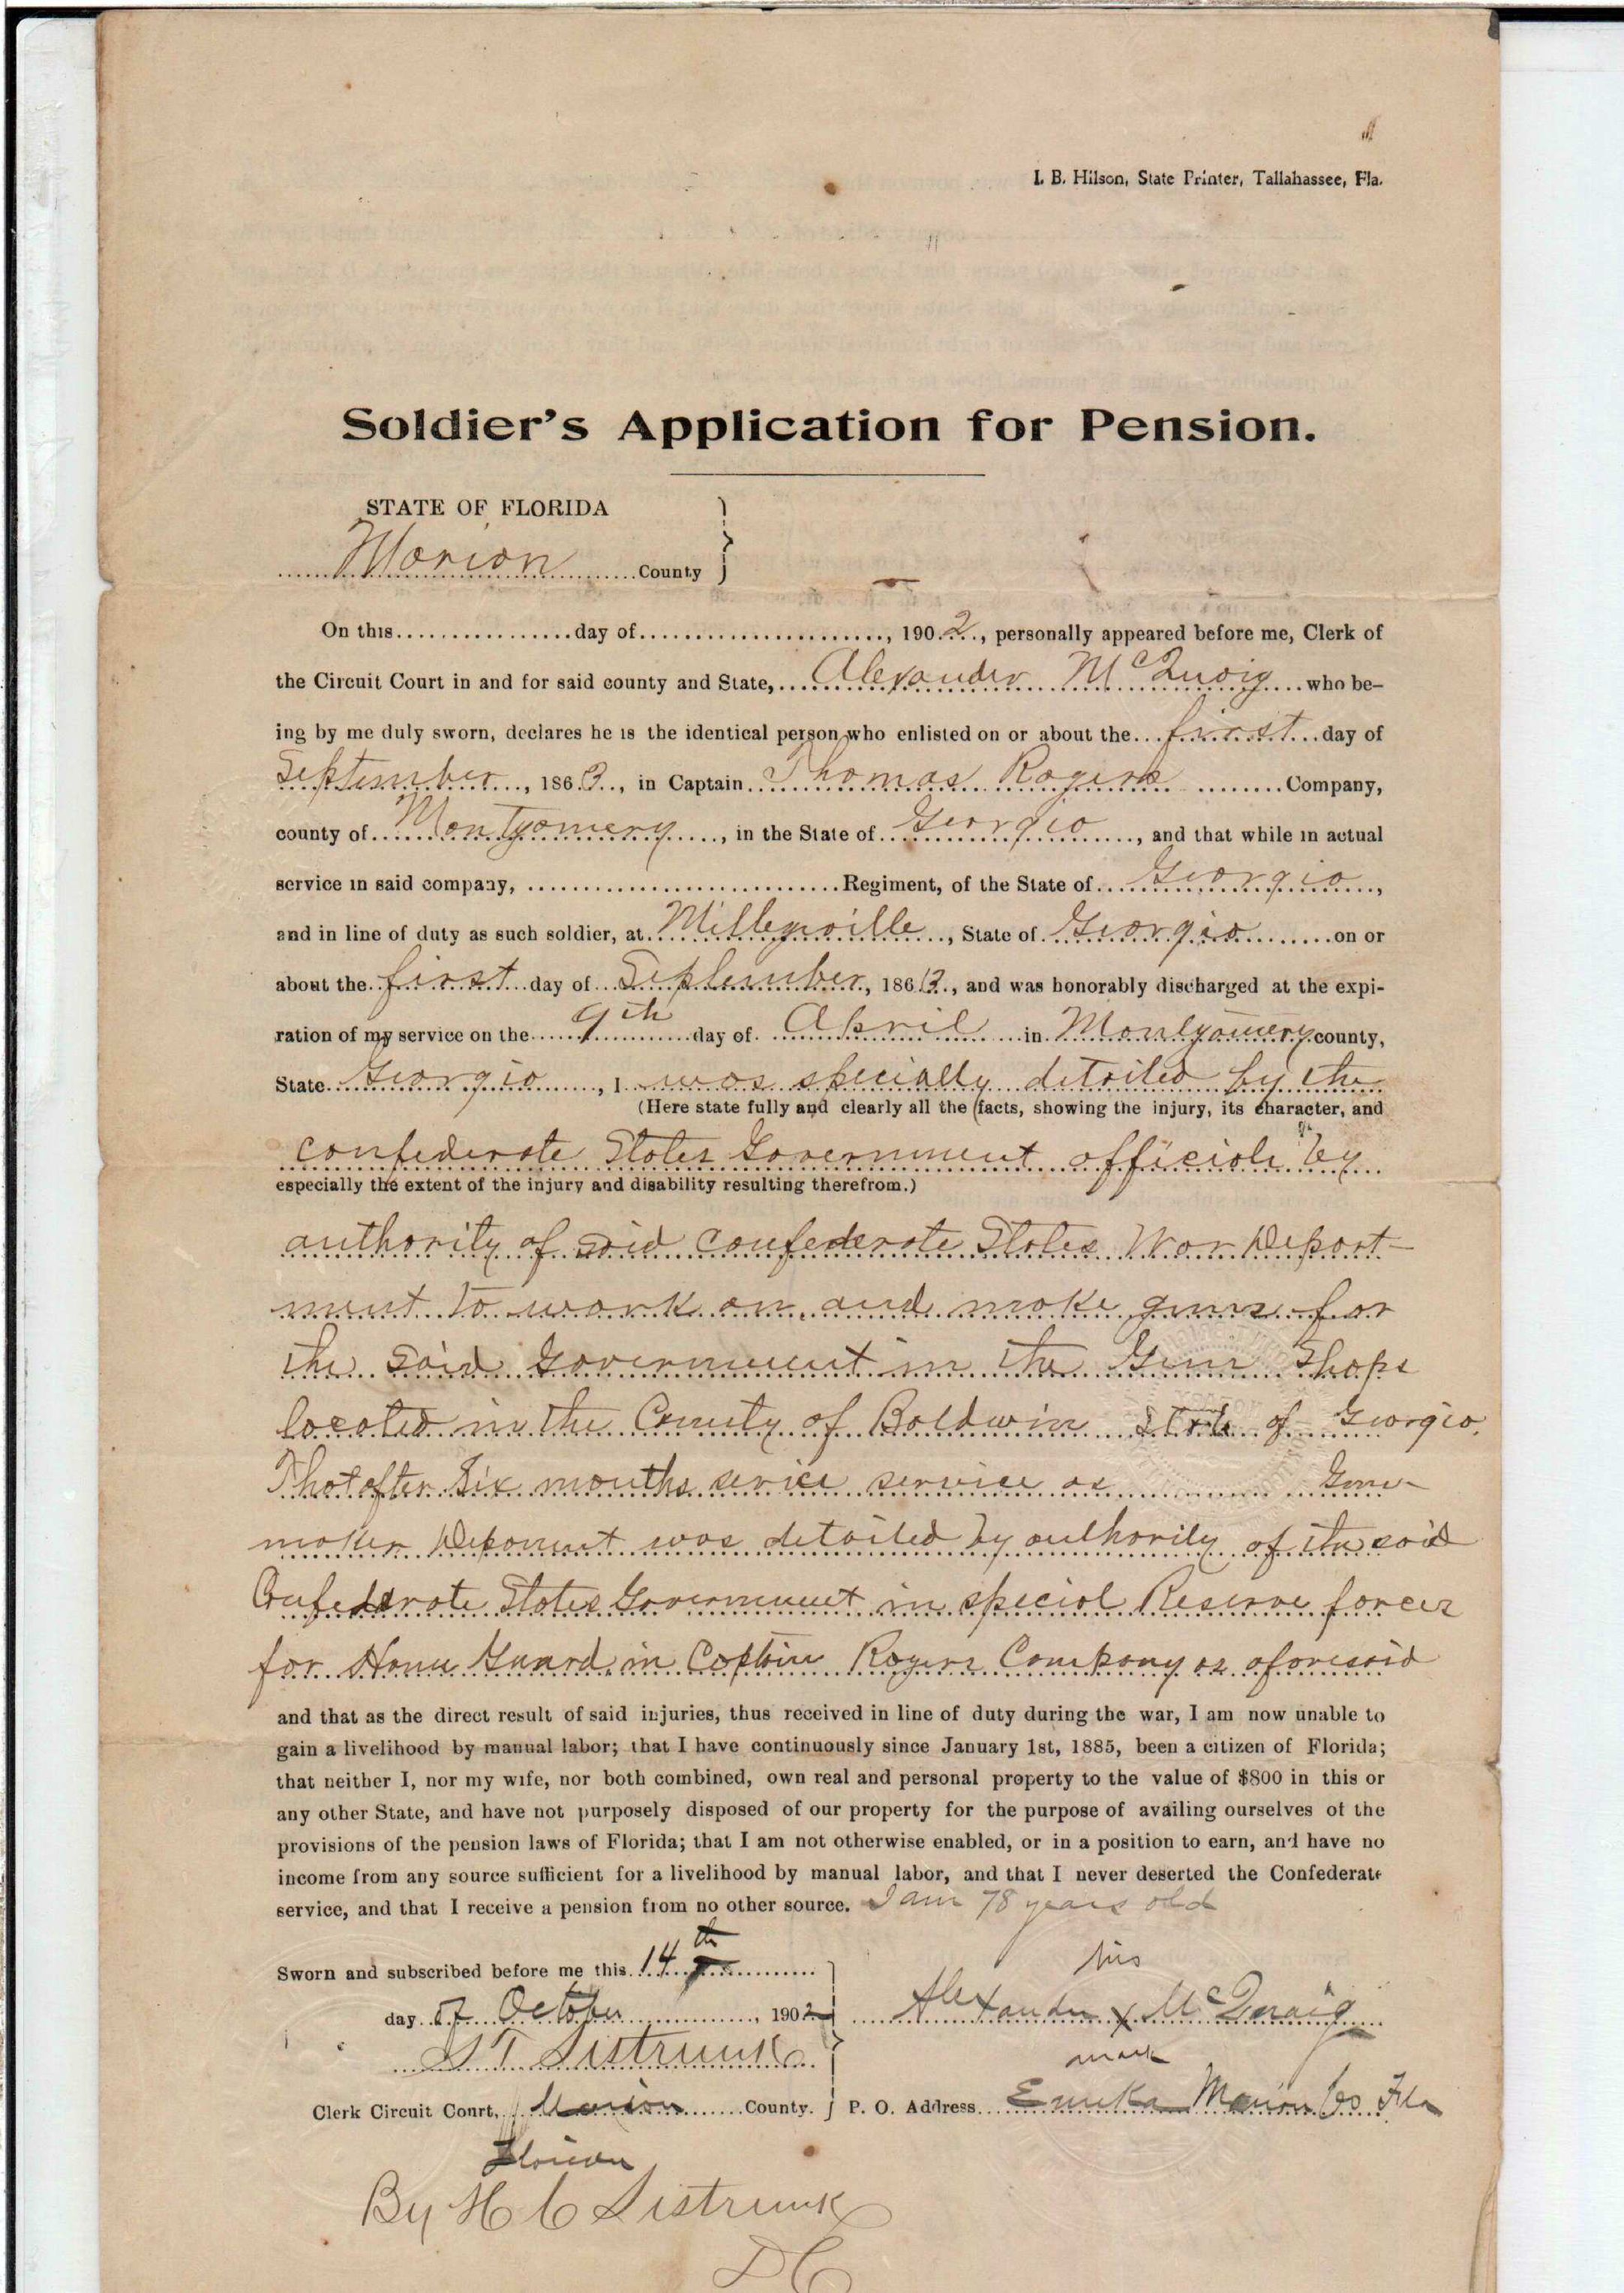 I. B. Hilson, State Printer, Tallahassee, Fla.
Soldier's Application for Pension.
STATE OF FLORIDA
Marion County
On this................day of......................, 1902, personally appeared before me, Clerk of
the Circuit Court in and for said county and State, Alexander McQuaig who be-
ing by me duly sworn, declares he is the identical person who enlisted on or about the first day of
September, 1863, in Captain Thomas Rogers Company,
county of Montgomery, in the State of Georgia, and that while in actual
service in said company, ............................Regiment, of the State of Georgia,
and in line of duty as such soldier, at Milledgeville, State of Georgia on or
about the first day of September, 1863, and was honorably discharged at the expi-
ration of my service on the 9th day of April in Montgomery county,
State Georgia, I was specially detailed by the
(Here state fully and clearly all the facts, showing the injury, its character, and
confederate States Government officials by
especially the extent of the injury and disability resulting therefrom.)
authority of said confederate States War Depart-
ment to work on and make guns for
the said Government in the Gun Shops
located in the County of Baldwin State of Georgia.
That after Six months service service as Gun-
maker Deponent was detailed by authority of the said
Confederate States Government in special Reserve forces
for Home Guard in Captain Rogers Company as aforesaid
and that as the direct result of said injuries, thus received in line of duty during the war, I am now unable to
gain a livelihood by manual labor; that I have continuously since January 1st, 1885, been a citizen of Florida;
that neither I, nor my wife, nor both combined, own real and personal property to the value of $800 in this or
any other State, and have not purposely disposed of our property for the purpose of availing ourselves of the
provisions of the pension laws of Florida; that I am not otherwise enabled, or in a position to earn, and have no
income from any source sufficient for a livelihood by manual labor, and that I never deserted the Confederate
service, and that I receive a pension from no other source. I am 78 years old
Sworn and subscribed before me this 14th
day of October, 1902
his
Alexander x McQuaig
mark
S T Sistrunk
Clerk Circuit Court, Marion County.
P. O. Address Eureka Marion Co Fla
Florida
By H C Sistrunk
D C